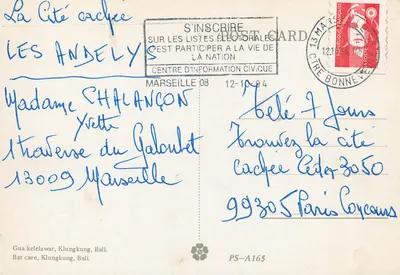 La Cité cachée
LES ANDELYS
Madame CHALANÇON
Yvette
1 traverse du Galoubet
13009 Marseille
S'INSCRIRE
SUR LES LISTES ÉLECTORALES
C'EST PARTICIPER A LA VIE DE
LA NATION
CENTRE D'INFORMATION CIVIQUE
MARSEILLE 08 12-10-94
POST CARD
13 MARS
CIRE BONNE
Télé 7 Jours
Trouvez la cité
cachée Cédex 3050
99305 Paris Concours
Gua kelelawar, Klungkung, Bali.
Bat care, Klungkung, Bali.
PS-A165